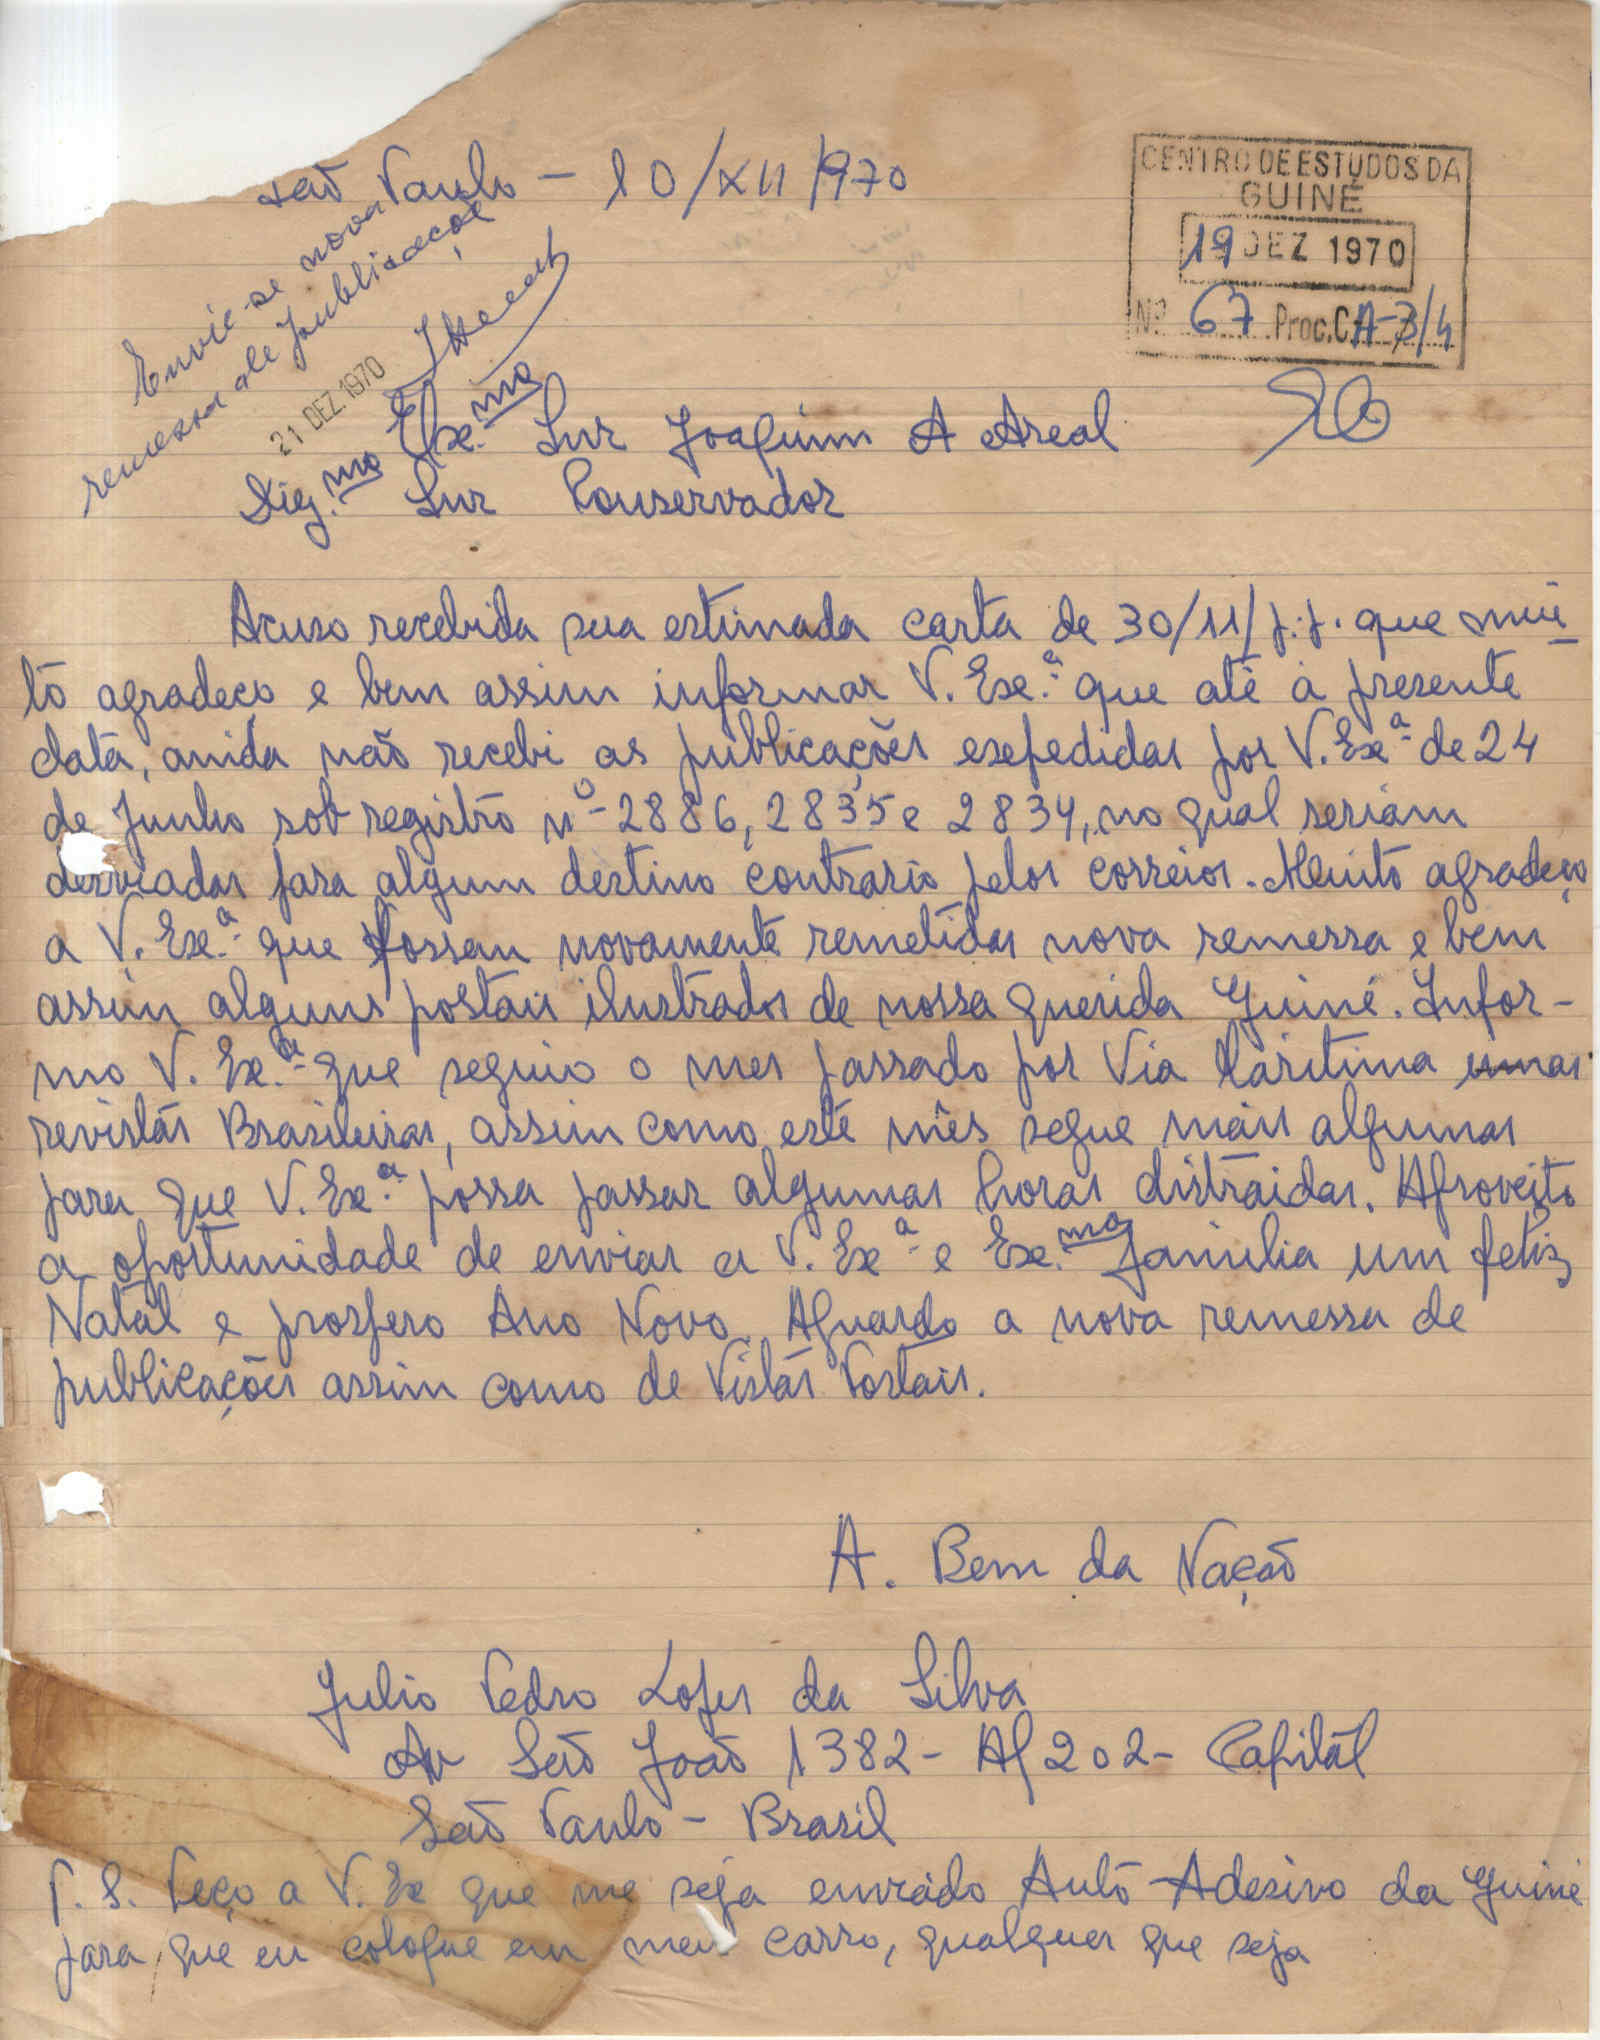 São Paulo - 10/XII/970
CENTRO DE ESTUDOS DA
GUINÉ
19 DEZ 1970
Nº 67 Proc. CA-3/4
Envie-se nova
remessa de publicações
21 DEZ. 1970
Exe.mo Snr Joaquim A Areal
Dig.mo Snr Conservador
Acuso recebida sua estimada carta de 30/11/p.p. que mui-
to agradeço e bem assim informar V. Exe.ª que até a presente
data, ainda não recebi as publicações expedidas por V. Exª de 24
de Junho sob registro nº 2886, 2835 e 2834, no qual seriam
desviadas para algum destino contrario pelos correios. Muito agradeço
a V. Exe.ª que fossem novamente remetidas nova remessa e bem
assim alguns postais ilustrados de nossa querida Guiné. Infor-
mo V. Exe.ª que seguio o mes passado por Via Maritima umas
revistas Brasileiras, assim como este mês segue mais algumas
para que V. Exe.ª possa passar algumas horas distraidas. Aproveito
a oportunidade de enviar a V. Exª e Exe.ma familia um feliz
Natal e prospero Ano Novo. Aguardo a nova remessa de
publicações assim como de Vistas Postais.
A. Bem da Nação
Julio Pedro Lopes da Silva
Av São João 1382 - Ap 202 - Capital
São Paulo - Brasil
P. S. Peço a V. Ex que me seja enviado Auto-Adesivo da Guiné
para que eu coloque em meu carro, qualquer que seja